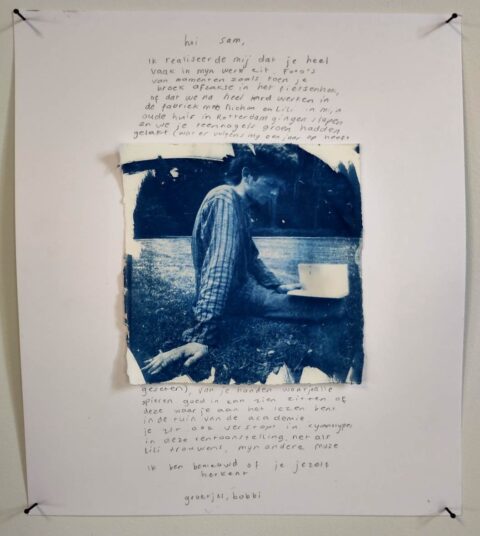 hoi sam,
ik realiseerde mij dat je heel
vaak in mijn werk zit. Foto's
van momenten zoals toen je
broek afzakte in het fietsenhok,
of dat we na heel hard werken in
de fabriek met en Lili in mijn
oude huis in Rotterdam gingen slapen
en we je teennagels groen hadden
gelakt (wat er volgens mij een jaar op heeft
gezeten), van je handen waar je alle
spieren goed in kan zien zitten of
deze waar je aan het lezen bent
in de tuin van de academie
je zit ook verstopt in cyanotypes
in deze tentoonstelling, net als
Lili trouwens, mijn andere muze.
ik ben benieuwd of je jezelf
herkent
groetjes, bobbi